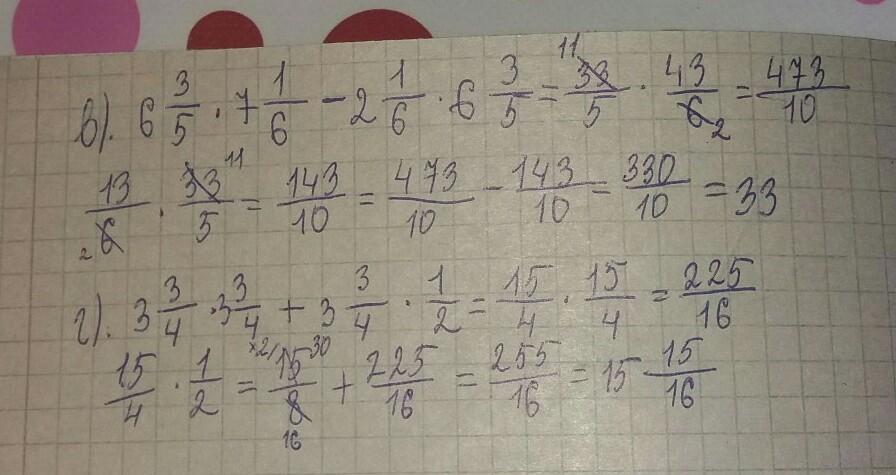 в). 6 3/5 · 7 1/6 - 2 1/6 · 6 3/5 = 11 33/5 · 43/6 2 = 473/10
13/6 2 · 33/5 11 = 143/10 = 473/10 - 143/10 = 330/10 = 33
г). 3 3/4 · 3 3/4 + 3 3/4 · 1/2 = 15/4 · 15/4 = 225/16
15/4 · 1/2 = ×2/ 15/8 30 16 + 225/16 = 255/16 = 15 15/16